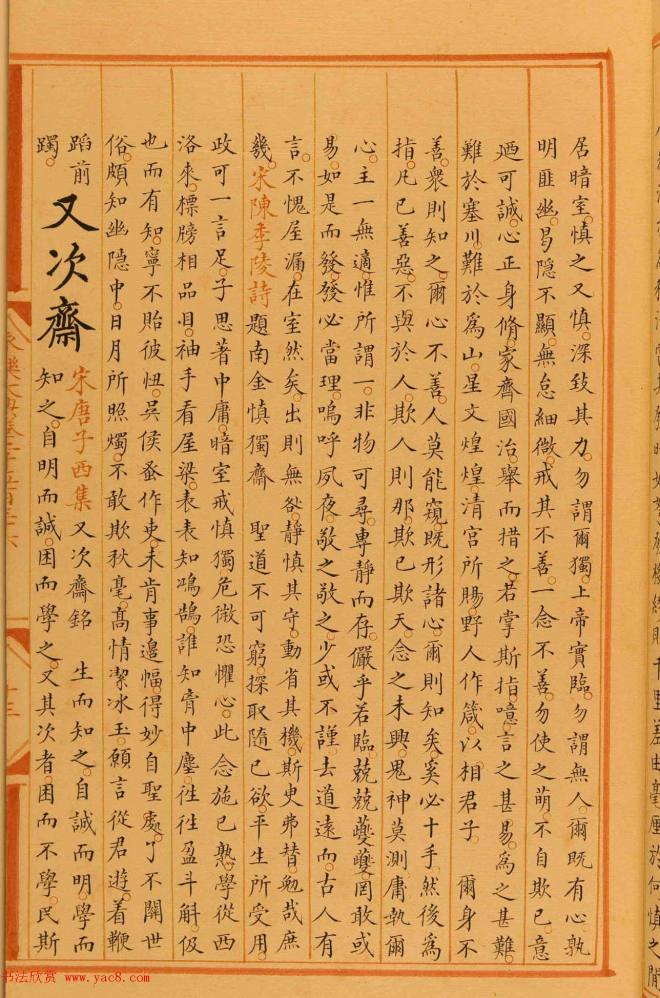 居暗室慎之又慎深致其力勿謂爾獨上帝實臨勿謂無人爾既有心孰
明匪幽曷隱不顯無怠細微戒其不善一念不善勿使之萌不自欺已意
廼可誠心正身脩家齊國治舉而措之若掌斯指噫言之甚易為之甚難
難於塞川難於為山星文煌煌清宮所賜野人作箴以相君子 爾身不
善衆則知之爾心不善人莫能窺既形諸心爾則知矣奚必十手然後為
指凡已善惡不與於人欺人則那欺已欺天念之未興鬼神莫測庸孰爾
心主一無適惟所謂一非物可尋專靜而存儼乎若臨兢兢夔夔罔敢或
易如是而發發必當理嗚呼夙夜敬之敬之少或不謹去道遠而古人有
言不愧屋漏在室然矣出則無愆靜慎其守動省其機斯史弗替勉哉庶
幾宋陳季陵詩題南金慎獨齋 聖道不可窮探取隨已欲平生所受用
政可一言足子思著中庸暗室戒慎獨危微恐懼心此念施已熟學從西
洛來標牓相品目袖手看屋梁表表知鴻鵠誰知胷中塵往往盈斗斛伋
也而有知寧不貽彼忸吳侯蚤作吏未肯事邊幅得妙自聖處了不關世
俗頗知幽隱中日月所照燭不敢欺秋毫高情潔冰玉願言從君遊着鞭
蹈前
躅
又次齋
宋唐子西集又次齋銘 生而知之自誠而明學而
知之自明而誠困而學之又其次者困而不學民斯
书法欣赏 www.yac8.com